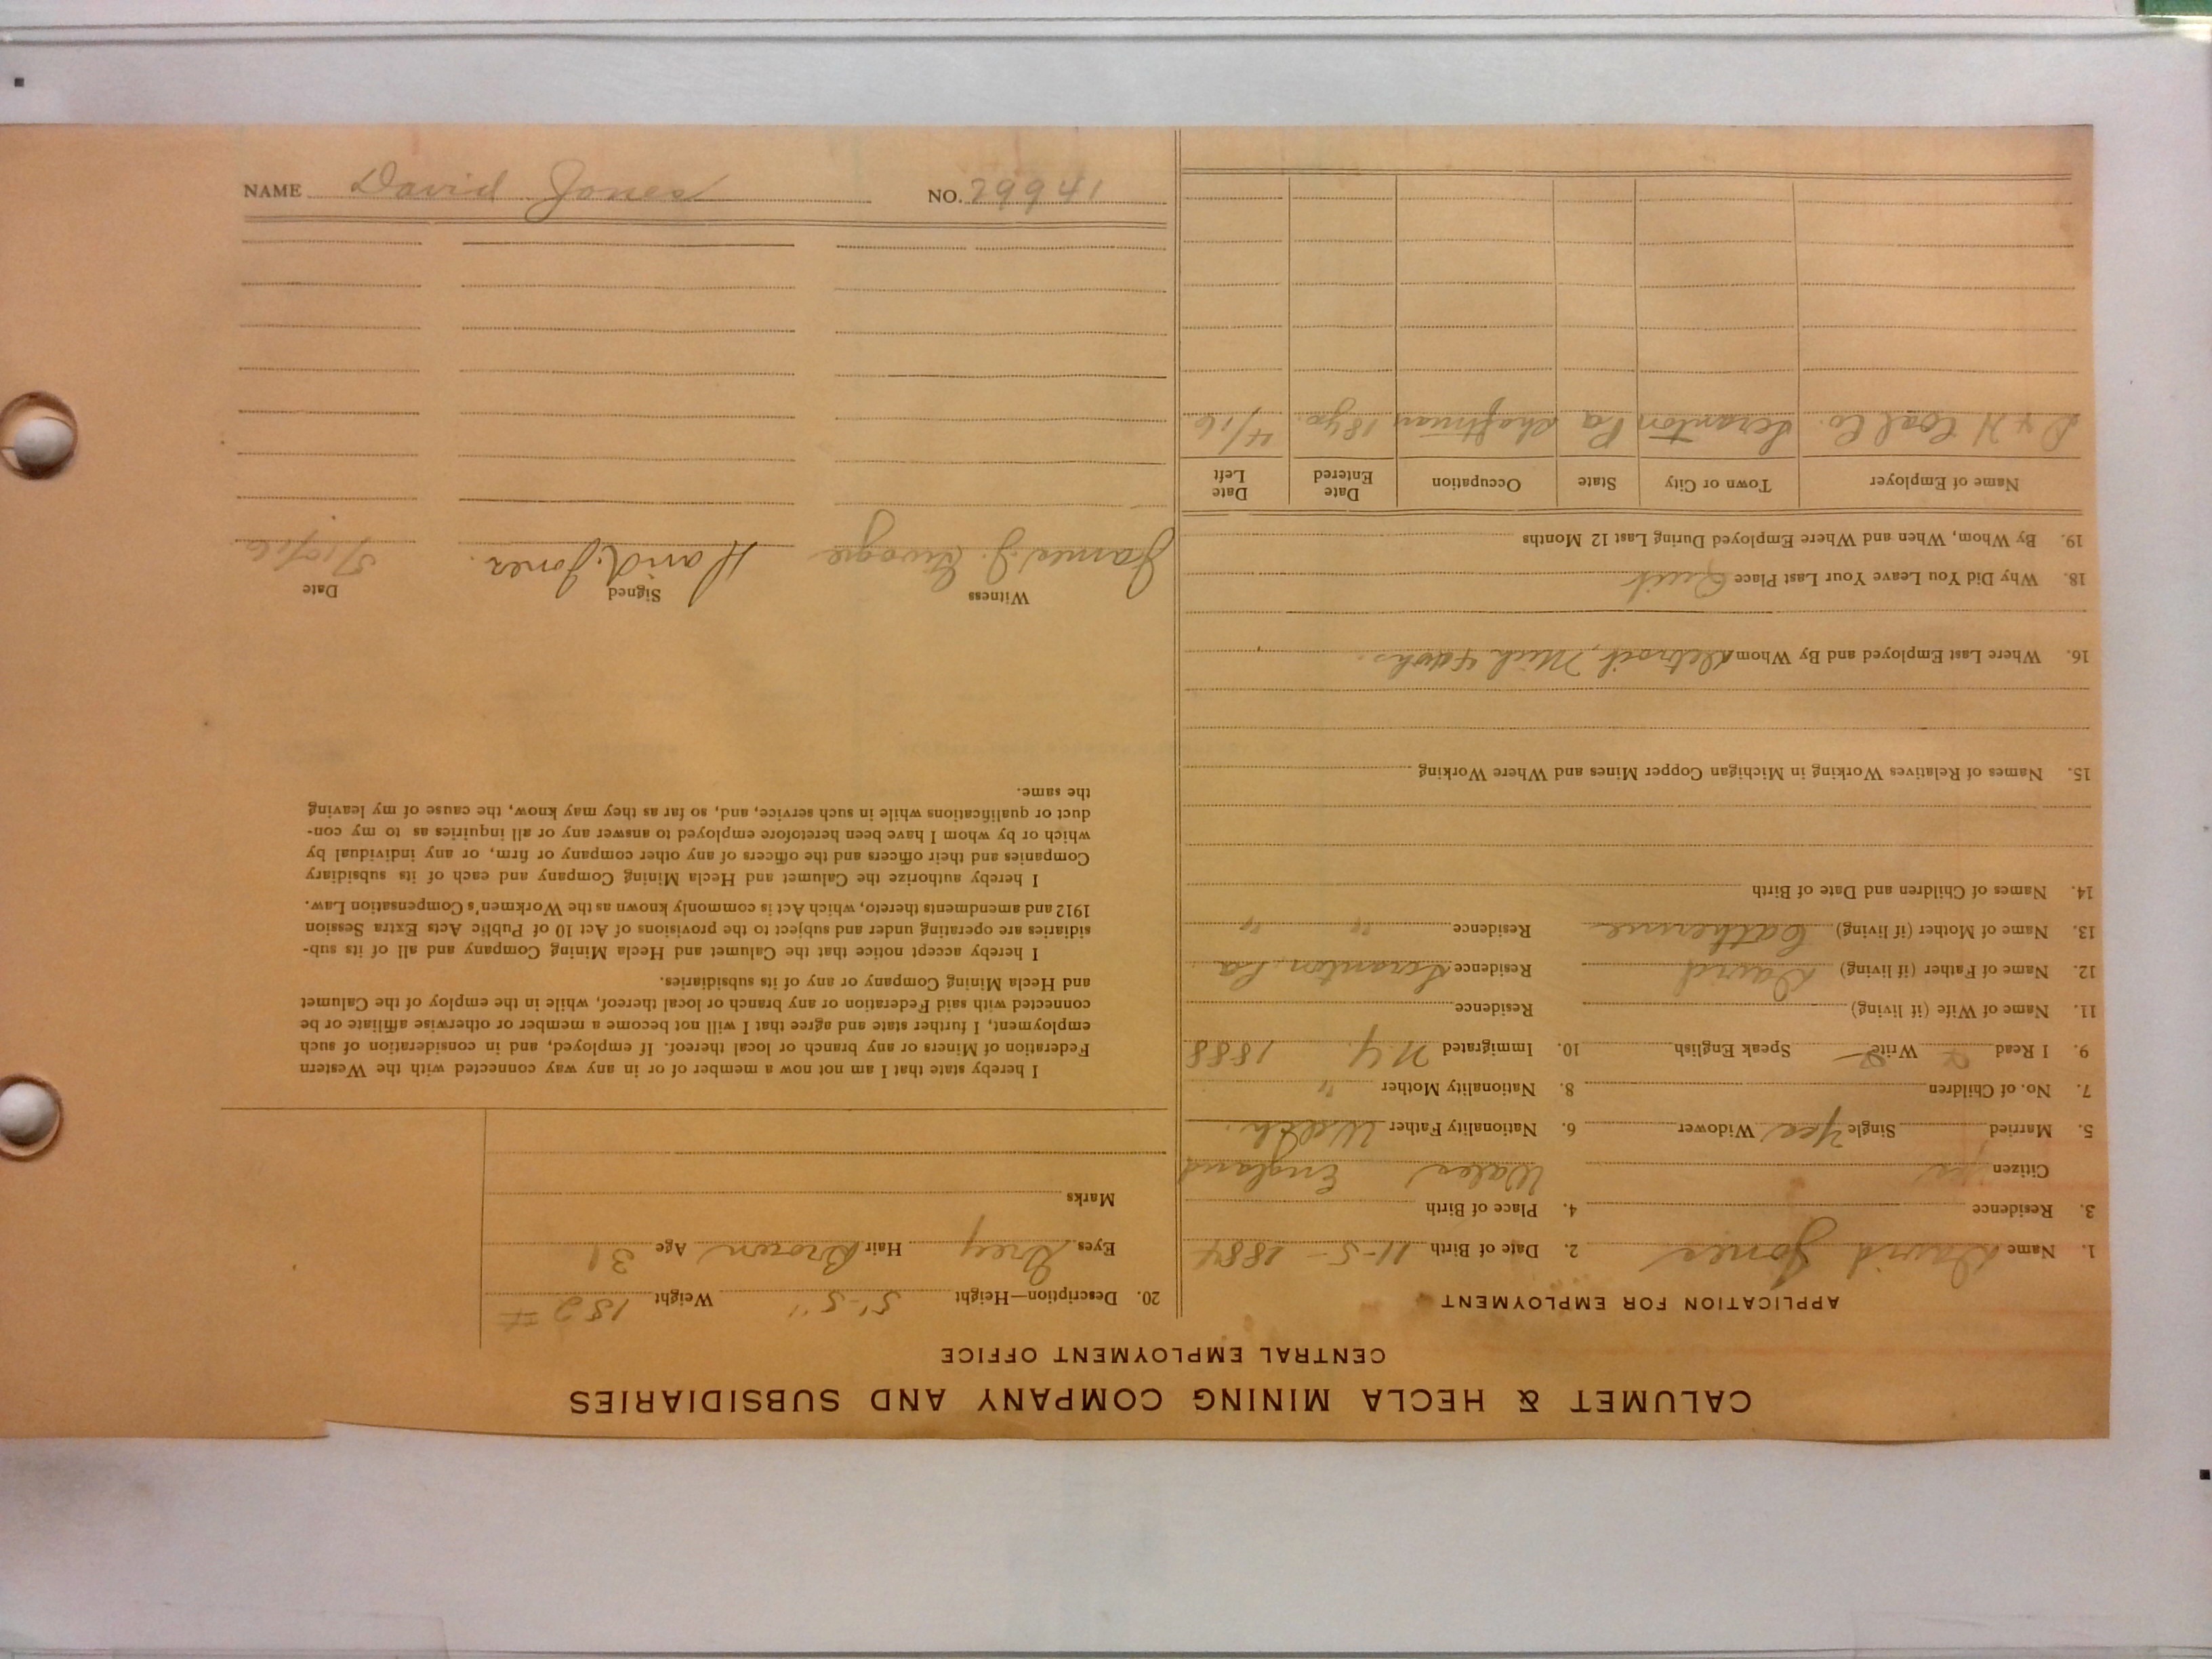 CALUMET & HECLA MINING COMPANY AND SUBSIDIARIES
CENTRAL EMPLOYMENT OFFICE
APPLICATION FOR EMPLOYMENT
1. Name David Jones 2. Date of Birth 11-5-1884
3. Residence 4. Place of Birth
Citizen yes Wales England
5. Married Single Yes Widower 6. Nationality Father Welsh.
7. No. of Children 8. Nationality Mother "
9. I Read Write Speak English 10. Immigrated N.Y. 1888
11. Name of Wife (if living) Residence
12. Name of Father (if living) David Residence Scranton, Pa
13. Name of Mother (if living) Catherine Residence " "
14. Names of Children and Date of Birth
15. Names of Relatives Working in Michigan Copper Mines and Where Working
16. Where Last Employed and By Whom Detroit, Mich
18. Why Did You Leave Your Last Place Quit
19. By Whom, When and Where Employed During Last 12 Months
Name of Employer Town or City State Occupation Date Entered Date Left
D & H Coal Co. Scranton Pa 18 yrs. 4/16
20. Description—Height 5'-5" Weight 152 #
Eyes Grey Hair Brown Age 31
Marks
I hereby state that I am not now a member of or in any way connected with the Western
Federation of Miners or any branch or local thereof. If employed, and in consideration of such
employment, I further state and agree that I will not become a member or otherwise affiliate or be
connected with said Federation or any branch or local thereof, while in the employ of the Calumet
and Hecla Mining Company or any of its subsidiaries.
I hereby accept notice that the Calumet and Hecla Mining Company and all of its sub-
sidiaries are operating under and subject to the provisions of Act 10 of Public Acts Extra Session
1912 and amendments thereto, which Act is commonly known as the Workmen's Compensation Law.
I hereby authorize the Calumet and Hecla Mining Company and each of its subsidiary
Companies and their officers and the officers of any other company or firm, or any individual by
which or by whom I have been heretofore employed to answer any or all inquiries as to my con-
duct or qualifications while in such service, and, so far as they may know, the cause of my leaving
the same.
Witness Signed Date
James J. David Jones.
NAME David Jones NO. 29941